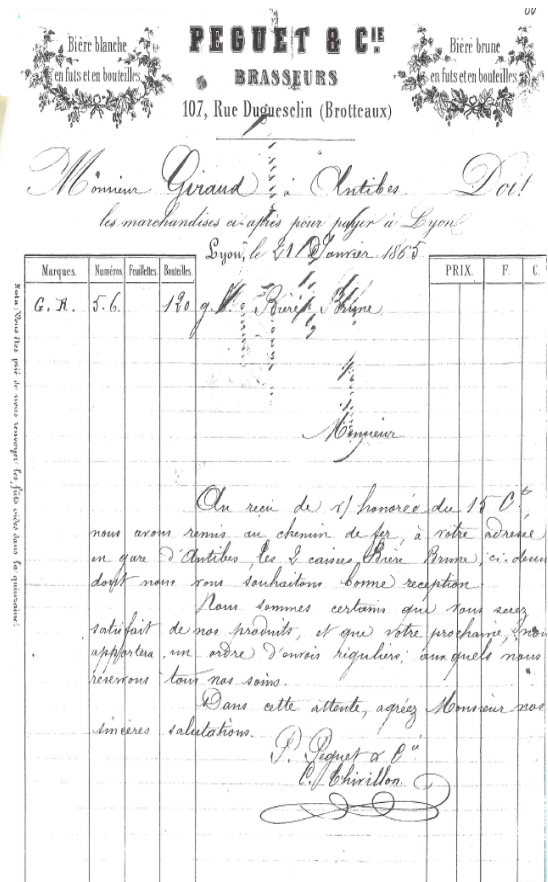 Bière blanche
en futs et en bouteilles
PEGUET & CIE
BRASSEURS
107, Rue Duguesclin (Brotteaux)
Bière brune
en futs et en bouteilles
Monsieur Giraud à Antibes Doit
les marchandises ci-après pour payer à Lyon
Lyon, le 21 Janvier 1865
Marques. Numéros. Feuillettes. Bouteilles. PRIX. F. C.
G. R. 5.6. 120 Bière Brune
Monsieur
Au reçu de v/ honorée du 15 Ct
nous avons remis au chemin de fer, à votre adresse
en gare d'Antibes, les 2 caisses Bière Brune, ci-dessus
dont nous vous souhaitons bonne reception.
Nous sommes certains que vous serez
satisfait de nos produits, et que votre prochaine, nous
apportera un ordre d'envois réguliers, auxquels nous
réservons tous nos soins.
Dans cette attente, agréez Monsieur nos
sincères salutations.
P. Peguet & Cie
C. Thivillon
Nota: Vous êtes prié de nous renvoyer les futs vides dans la quinzaine.